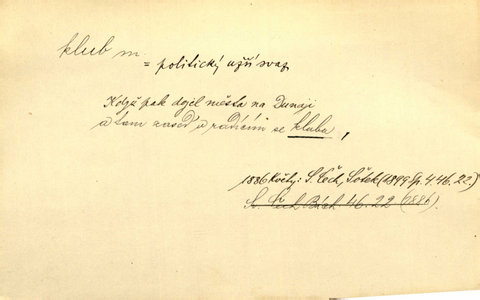 klub m.
= politický užší svaz
Když pak dojel města na Dunaji
a tam zased v radícím se klubu,
1886 Květy: S. Čech, Šotek (1899 Sp. 4.46.22.)
S. Čech Básn 46.22 (1886).